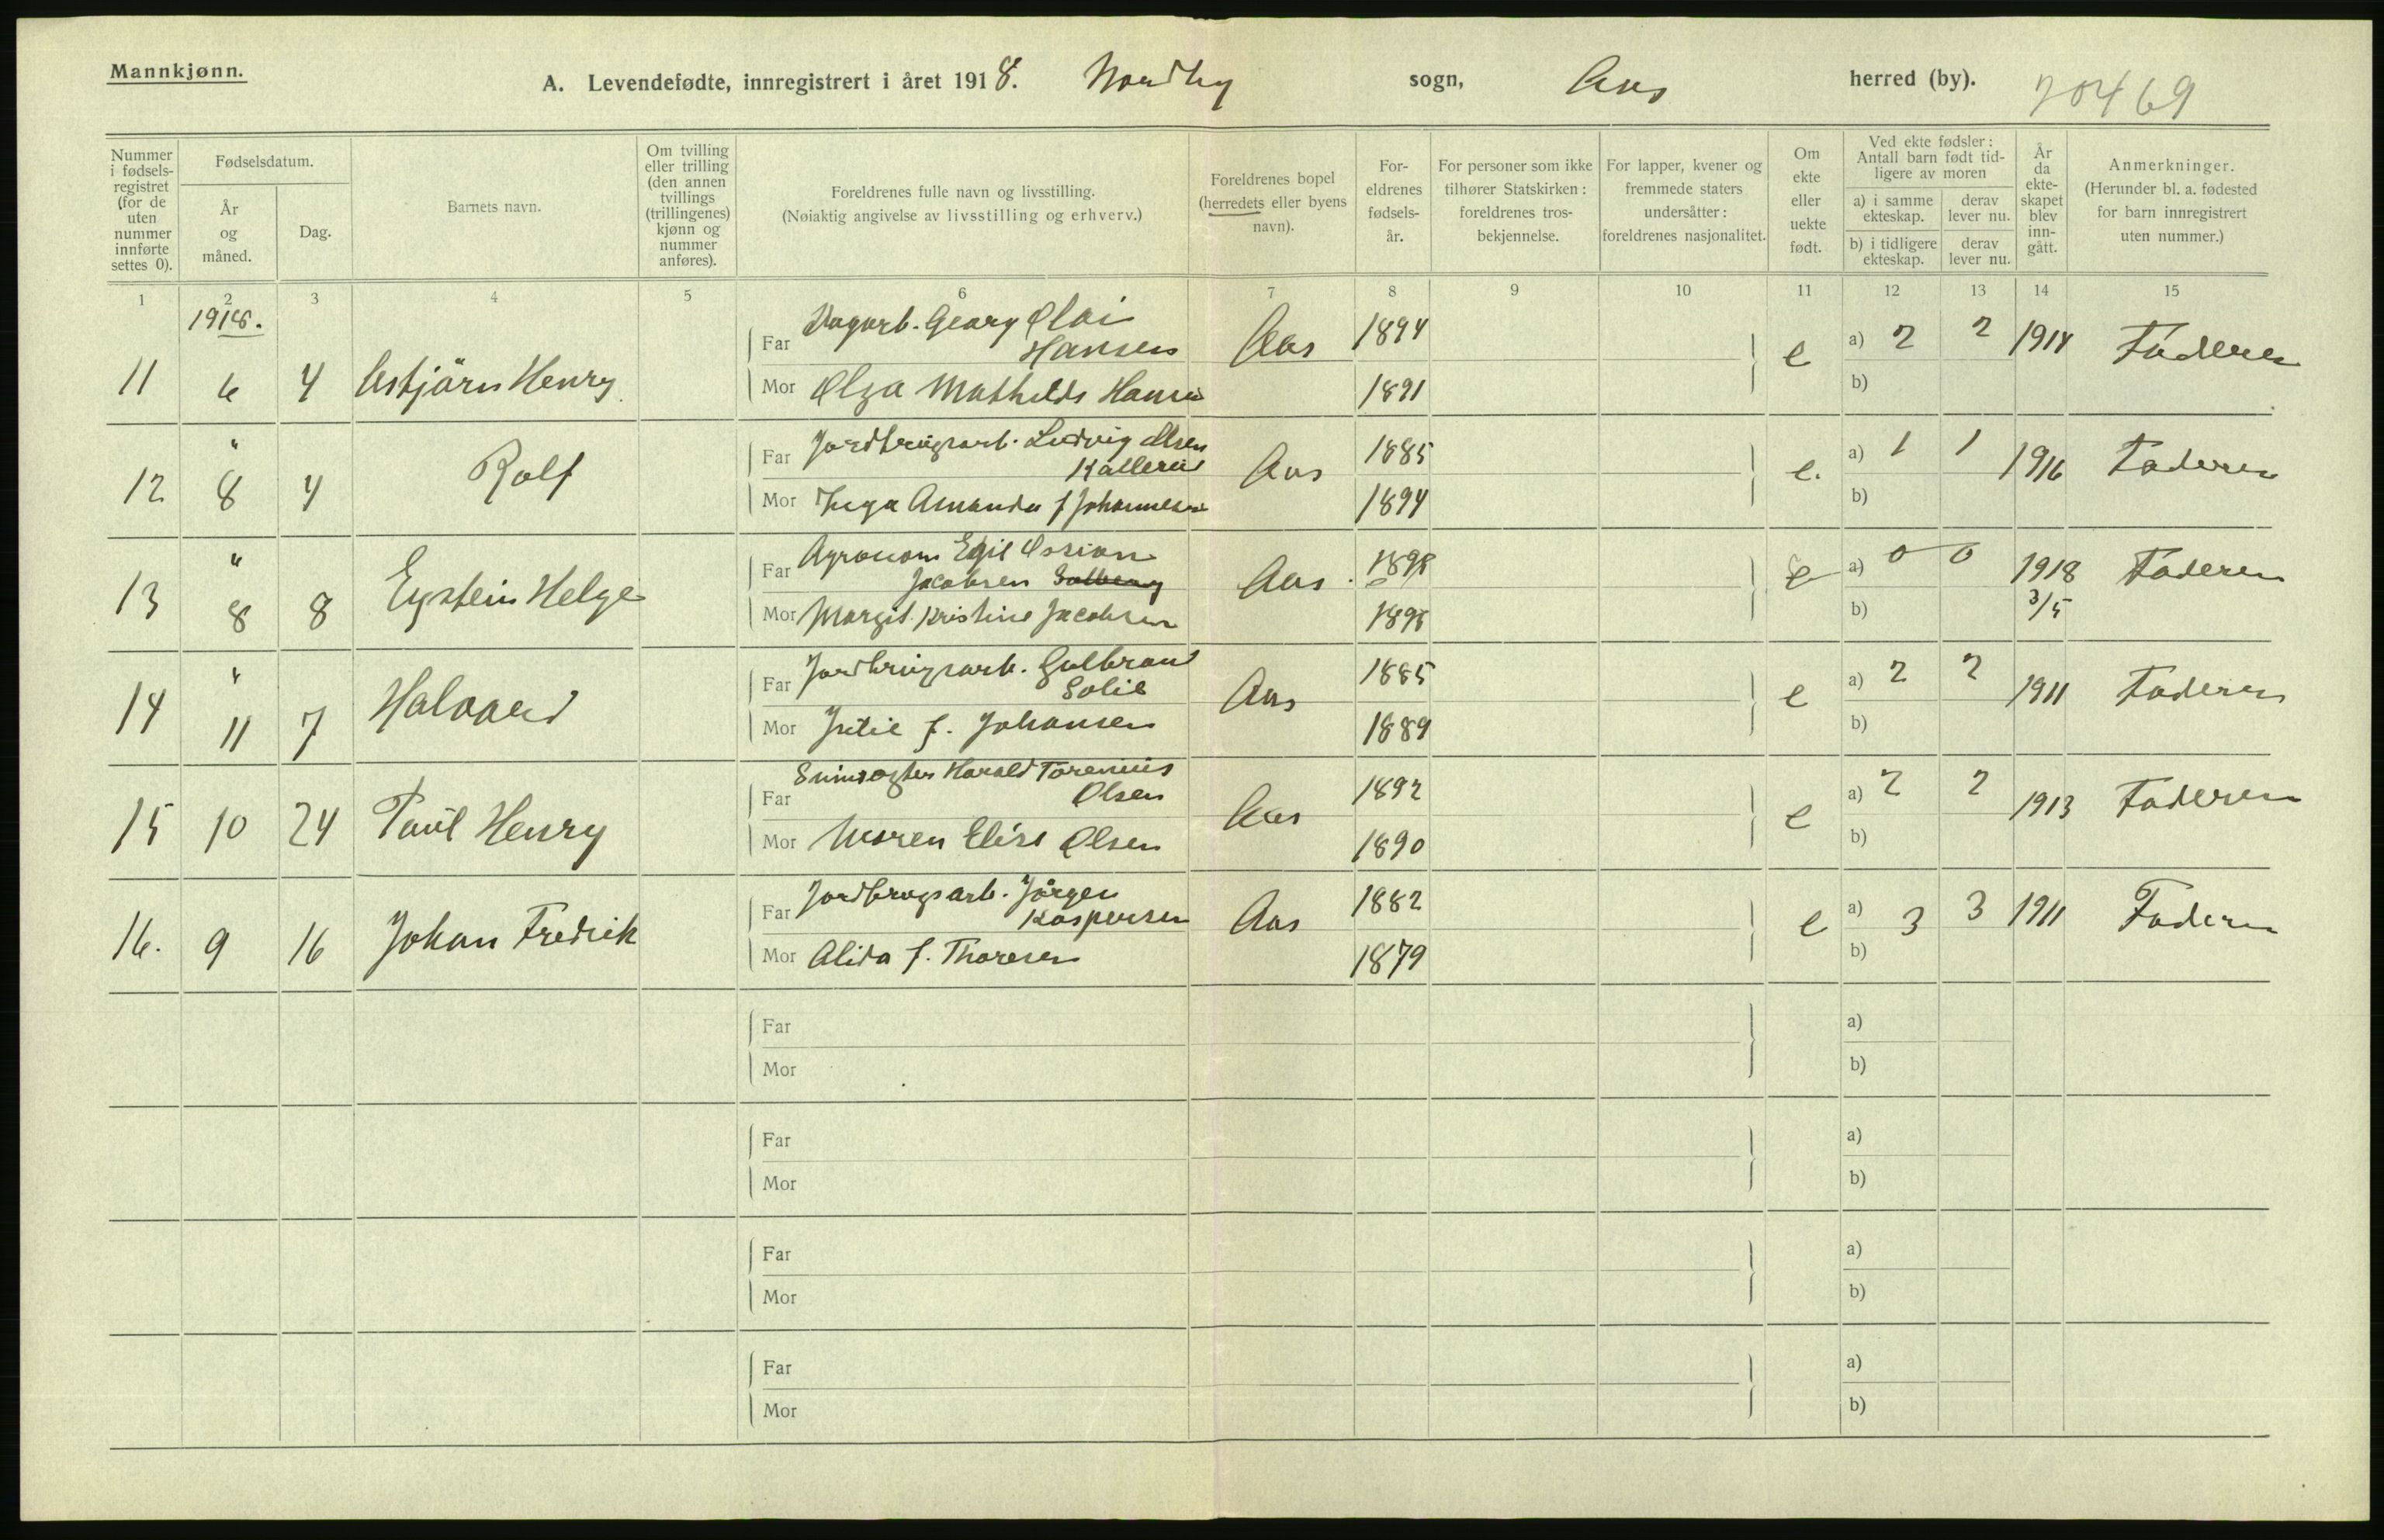 Mannkjønn.
A. Levendefødte, innregistrert i året 1918. Nordby sogn, Aas herred (by). 20469
Nummer i fødsels-registret (for de uten nummer innførte settes 0).
Fødselsdatum.
År og måned.
Dag.
Barnets navn.
Om tvilling eller trilling (den annen tvillings (trillingenes) kjønn og nummer anføres).
Foreldrenes fulle navn og livsstilling.
(Nøiaktig angivelse av livsstilling og erhverv.)
Foreldrenes bopel (herredets eller byens navn).
For-eldrenes fødsels-år.
For personer som ikke tilhører Statskirken: foreldrenes tros-bekjennelse.
For lapper, kvener og fremmede staters undersåtter: foreldrenes nasjonalitet.
Om ekte eller uekte født.
Ved ekte fødsler: Antall barn født tid-ligere av moren
a) i samme ekteskap.
derav lever nu.
b) i tidligere ekteskap.
derav lever nu.
År da ekte-skapet blev inn-gått.
Anmerkninger.
(Herunder bl. a. fødested for barn innregistrert uten nummer.)
1 2 3 4 5 6 7 8 9 10 11 12 13 14 15
1918.
11 6 4 Asbjörn Henry
Far Dagarb. Georg Olai Hansen Aas 1894 e a) 2 2 1914 Faderen
Mor Olga Mathilde Hansen 1891 b)
12 " 8 4 Rolf
Far Jordbrugsarb. Ludvig Olsen Aas 1885 e. a) 1 1 1916 Faderen
Mor Inga Amanda f Johannesen 1894 b)
13 " 8 8 Eystein Helge
Far Agronom Egil Ossian Jacobsen Solberg Aas. 1898 e a) 0 0 1918 3/5 Faderen
Mor Margit Kristine Jacobsen 1898 b)
14 " 11 7 Halvard
Far Jordbrugsarb. Gulbrand Solie Aas 1885 e a) 2 2 1911 Faderen
Mor f. Johansen 1889 b)
15 10 24 Paul Henry
Far Harald Torenius Olsen Aas 1892 e a) 2 2 1913 Faderen
Mor Maren Elise Olsen 1890 b)
16. 9 16 Johan Fredrik
Far Jordbrugsarb. Jörgen Kaspersen Aas 1882 e a) 3 3 1911 Faderen
Mor Alida f. Thoresen 1879 b)
Far a)
Mor b)
Far a)
Mor b)
Far a)
Mor b)
Far a)
Mor b)